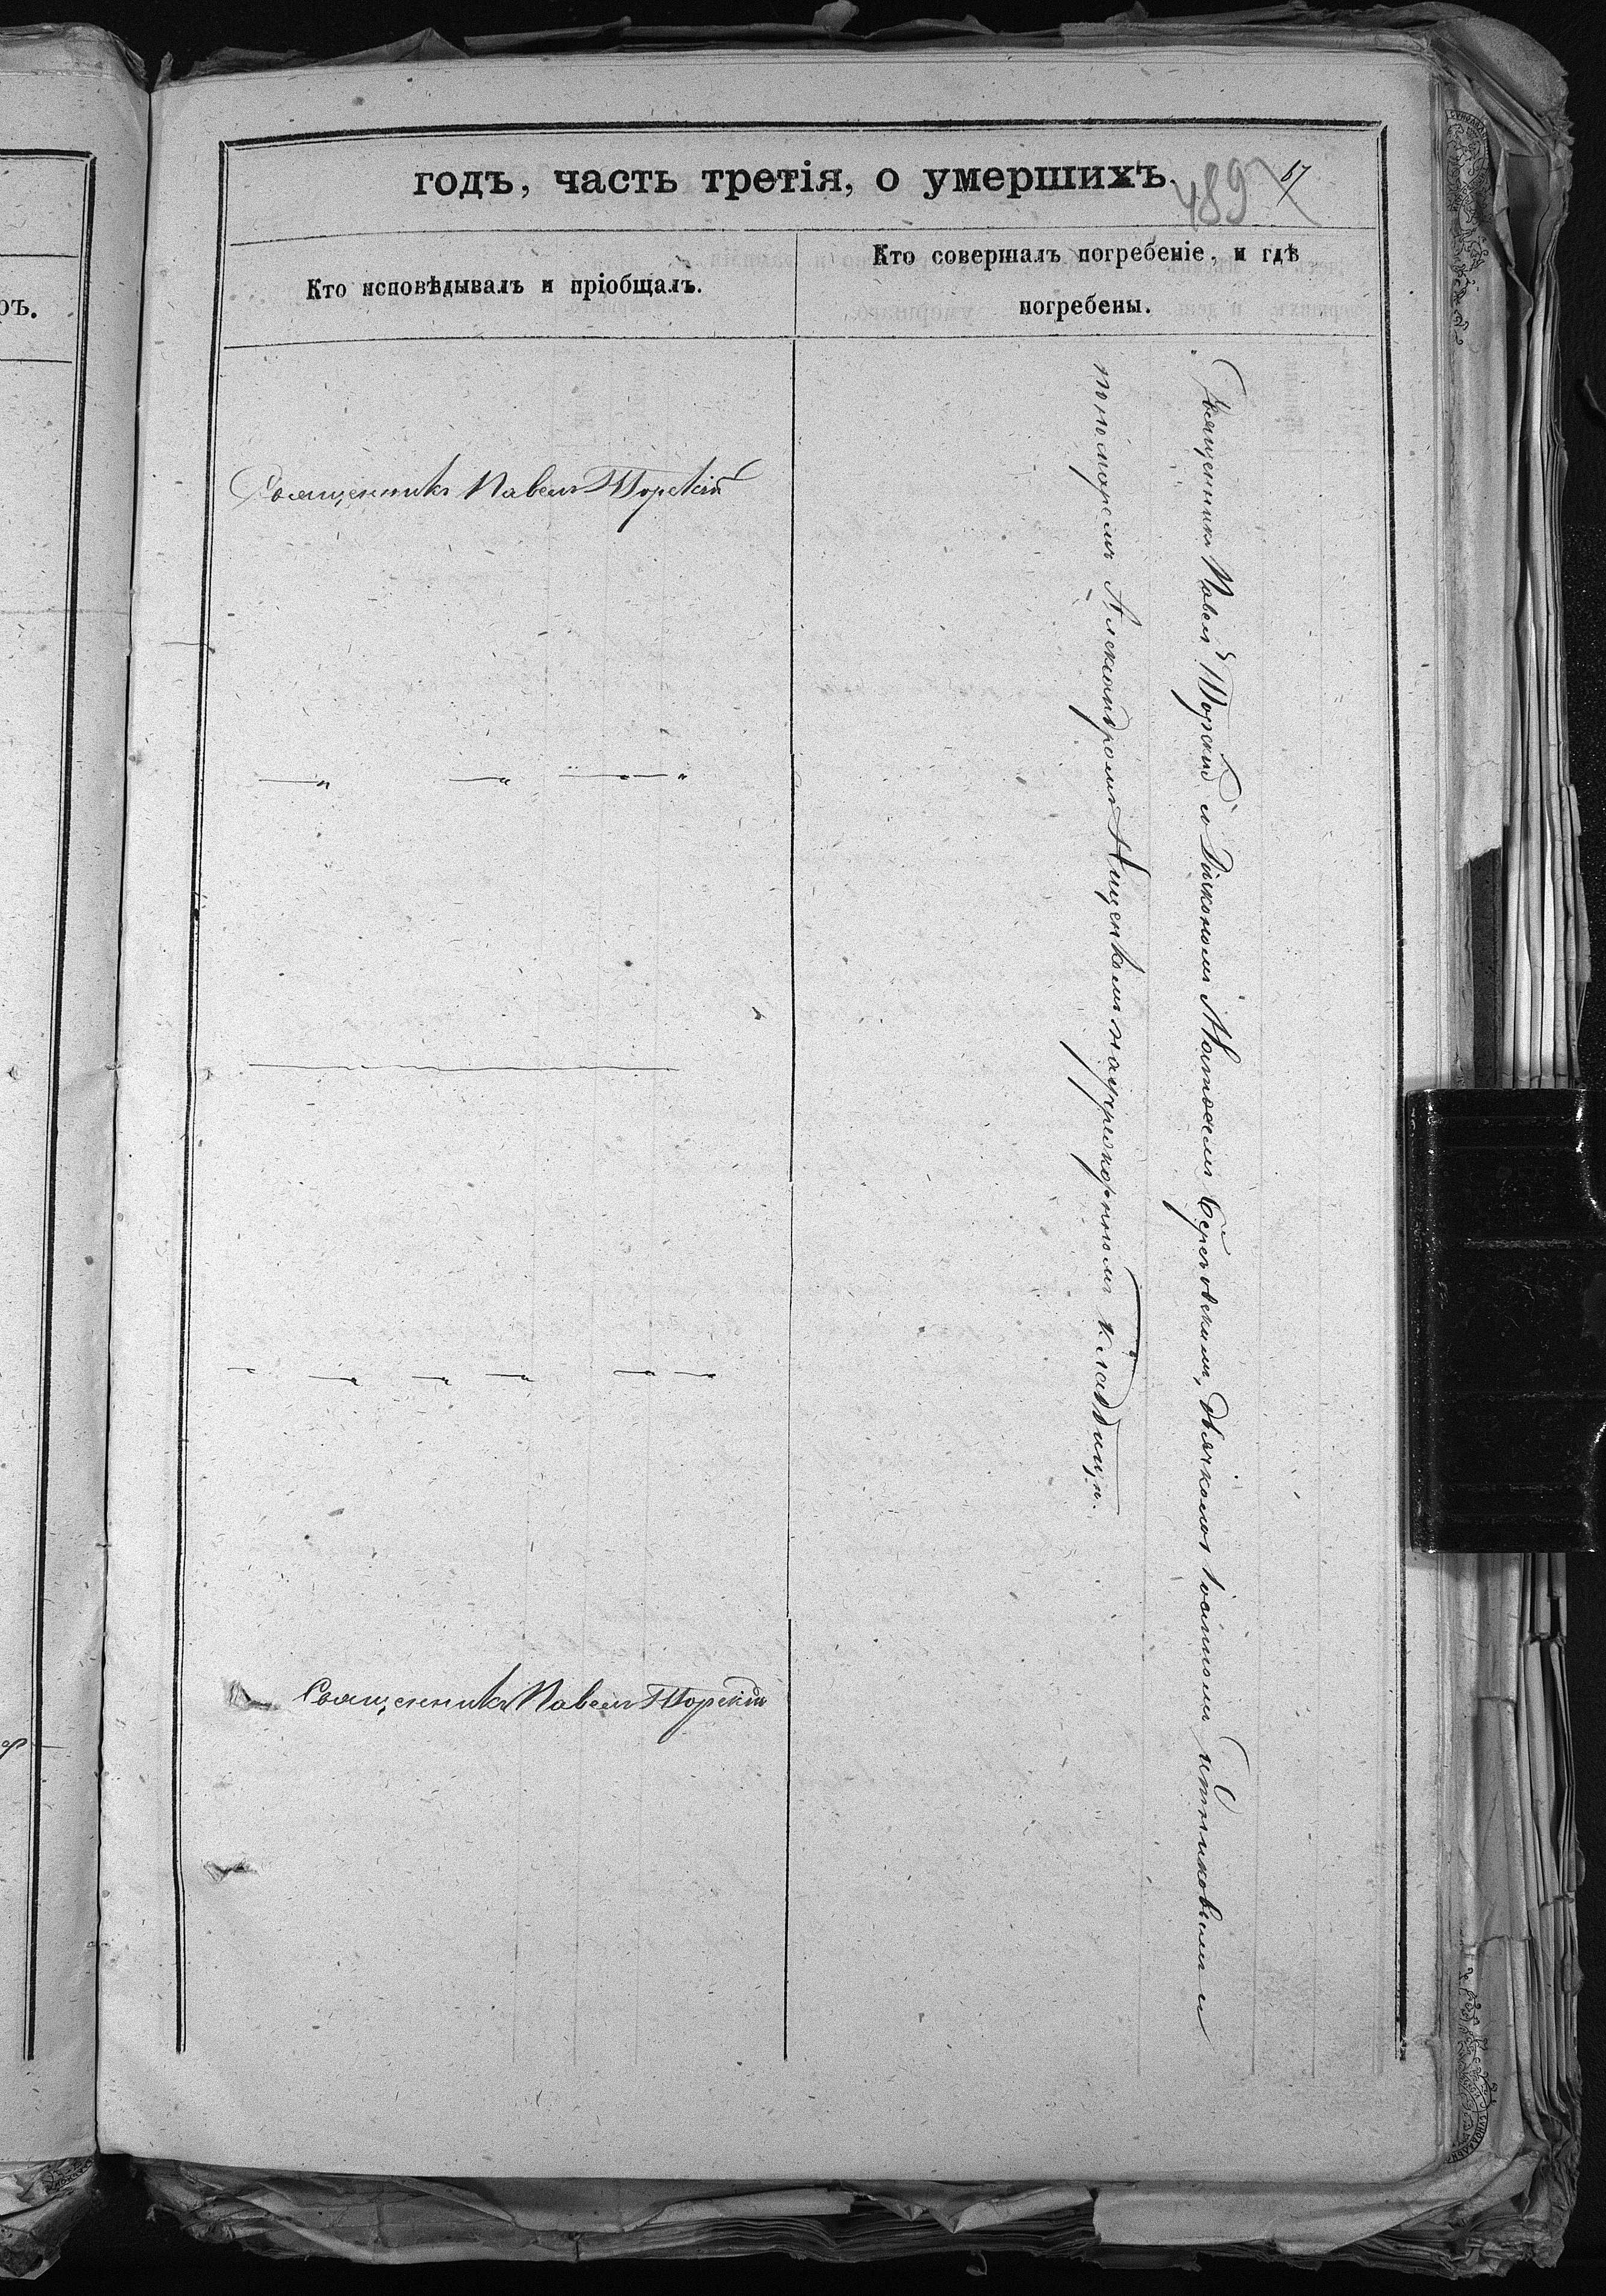 годъ, часть третія, о умершихъ.
489 67
Кто исповѣдывалъ и пріобщалъ.
Кто совершалъ погребеніе, и гдѣ
погребены.
Священникъ Павелъ Торскій
Священникъ Павелъ Торскій
Священникъ Павелъ Торскій съ Діакономъ Матѳеемъ Дьячкомъ Іоанномъ и
пономаремъ Александромъ Нищенкомъ на кладбищѣ.
ръ.